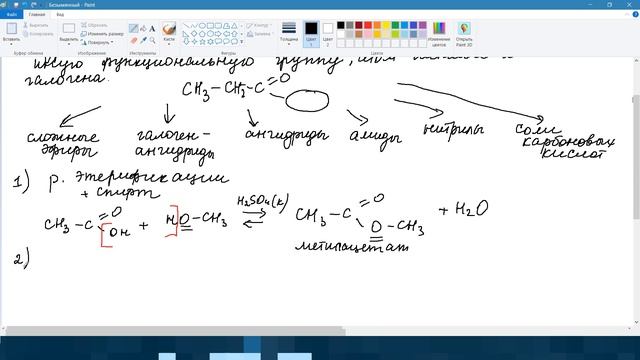 Безымянный - Paint
Файл Главная Вид
Вставить
Выделить
Обрезать
Изменить размер
Повернуть
Кисти
Контур
Заливка
Толщина
Цвет 1
Цвет 2
Изменение цветов
Открыть Paint 3D
Буфер обмена Изображение Инструменты Фигуры Цвета
функциональную группу
галогена.
CH₃ – CH₂ – C =O
сложные эфиры галоген-ангидриды ангидриды амиды нитрилы соли карбоновых кислот
1) р. этерификации
+ спирт
CH₃ – C =O OH + HO – CH₃ H₂SO₄(к) ⇌ CH₃ – C =O O – CH₃ + H₂O
метилацетат
2)